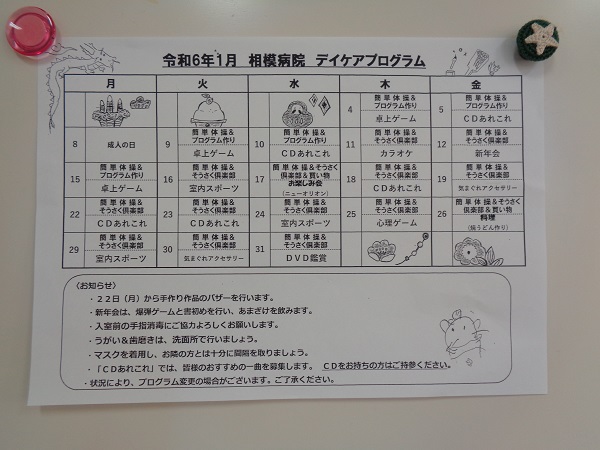 令和6年1月 相模病院 デイケアプログラム
月 火 水 木 金
4 簡単体操&プログラム作り 卓上ゲーム
5 簡単体操&プログラム作り CDあれこれ
8 成人の日
9 簡単体操&プログラム作り 卓上ゲーム
10 簡単体操&プログラム作り CDあれこれ
11 簡単体操&そうさく倶楽部 カラオケ
12 簡単体操&そうさく倶楽部 新年会
15 簡単体操&プログラム作り 卓上ゲーム
16 簡単体操&そうさく倶楽部 室内スポーツ
17 簡単体操&そうさく倶楽部&買い物 お楽しみ会 (ニューオリオン)
18 簡単体操&そうさく倶楽部 CDあれこれ
19 簡単体操&そうさく倶楽部 気まぐれアクセサリー
22 簡単体操&そうさく倶楽部 CDあれこれ
23 簡単体操&そうさく倶楽部 CDあれこれ
24 簡単体操&そうさく倶楽部 室内スポーツ
25 簡単体操&そうさく倶楽部 心理ゲーム
26 簡単体操&そうさく倶楽部&買い物 料理 (焼うどん作り)
29 簡単体操&そうさく倶楽部 室内スポーツ
30 簡単体操&そうさく倶楽部 気まぐれアクセサリー
31 簡単体操&そうさく倶楽部 DVD鑑賞
〈お知らせ〉
・22日(月)から手作り作品のバザーを行います。
・新年会は、爆弾ゲームと書初めを行い、あまざけを飲みます。
・入室前の手指消毒にご協力よろしくお願いします。
・うがい&歯磨きは、洗面所で行いましょう。
・マスクを着用し、お隣の方とは十分に間隔を取りましょう。
・「CDあれこれ」では、皆様のおすすめの一曲を募集します。 CDをお持ちの方はご持参ください。
・状況により、プログラム変更の場合がございます。ご了承ください。